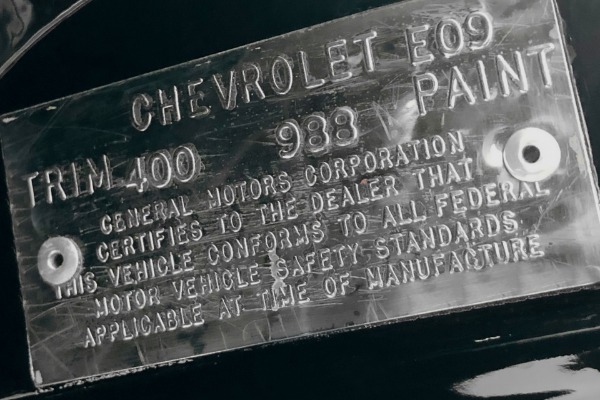 CHEVROLET E09
TRIM 400 988 PAINT
GENERAL MOTORS CORPORATION
CERTIFIES TO THE DEALER THAT
THIS VEHICLE CONFORMS TO ALL FEDERAL
MOTOR VEHICLE SAFETY STANDARDS
APPLICABLE AT TIME OF MANUFACTURE